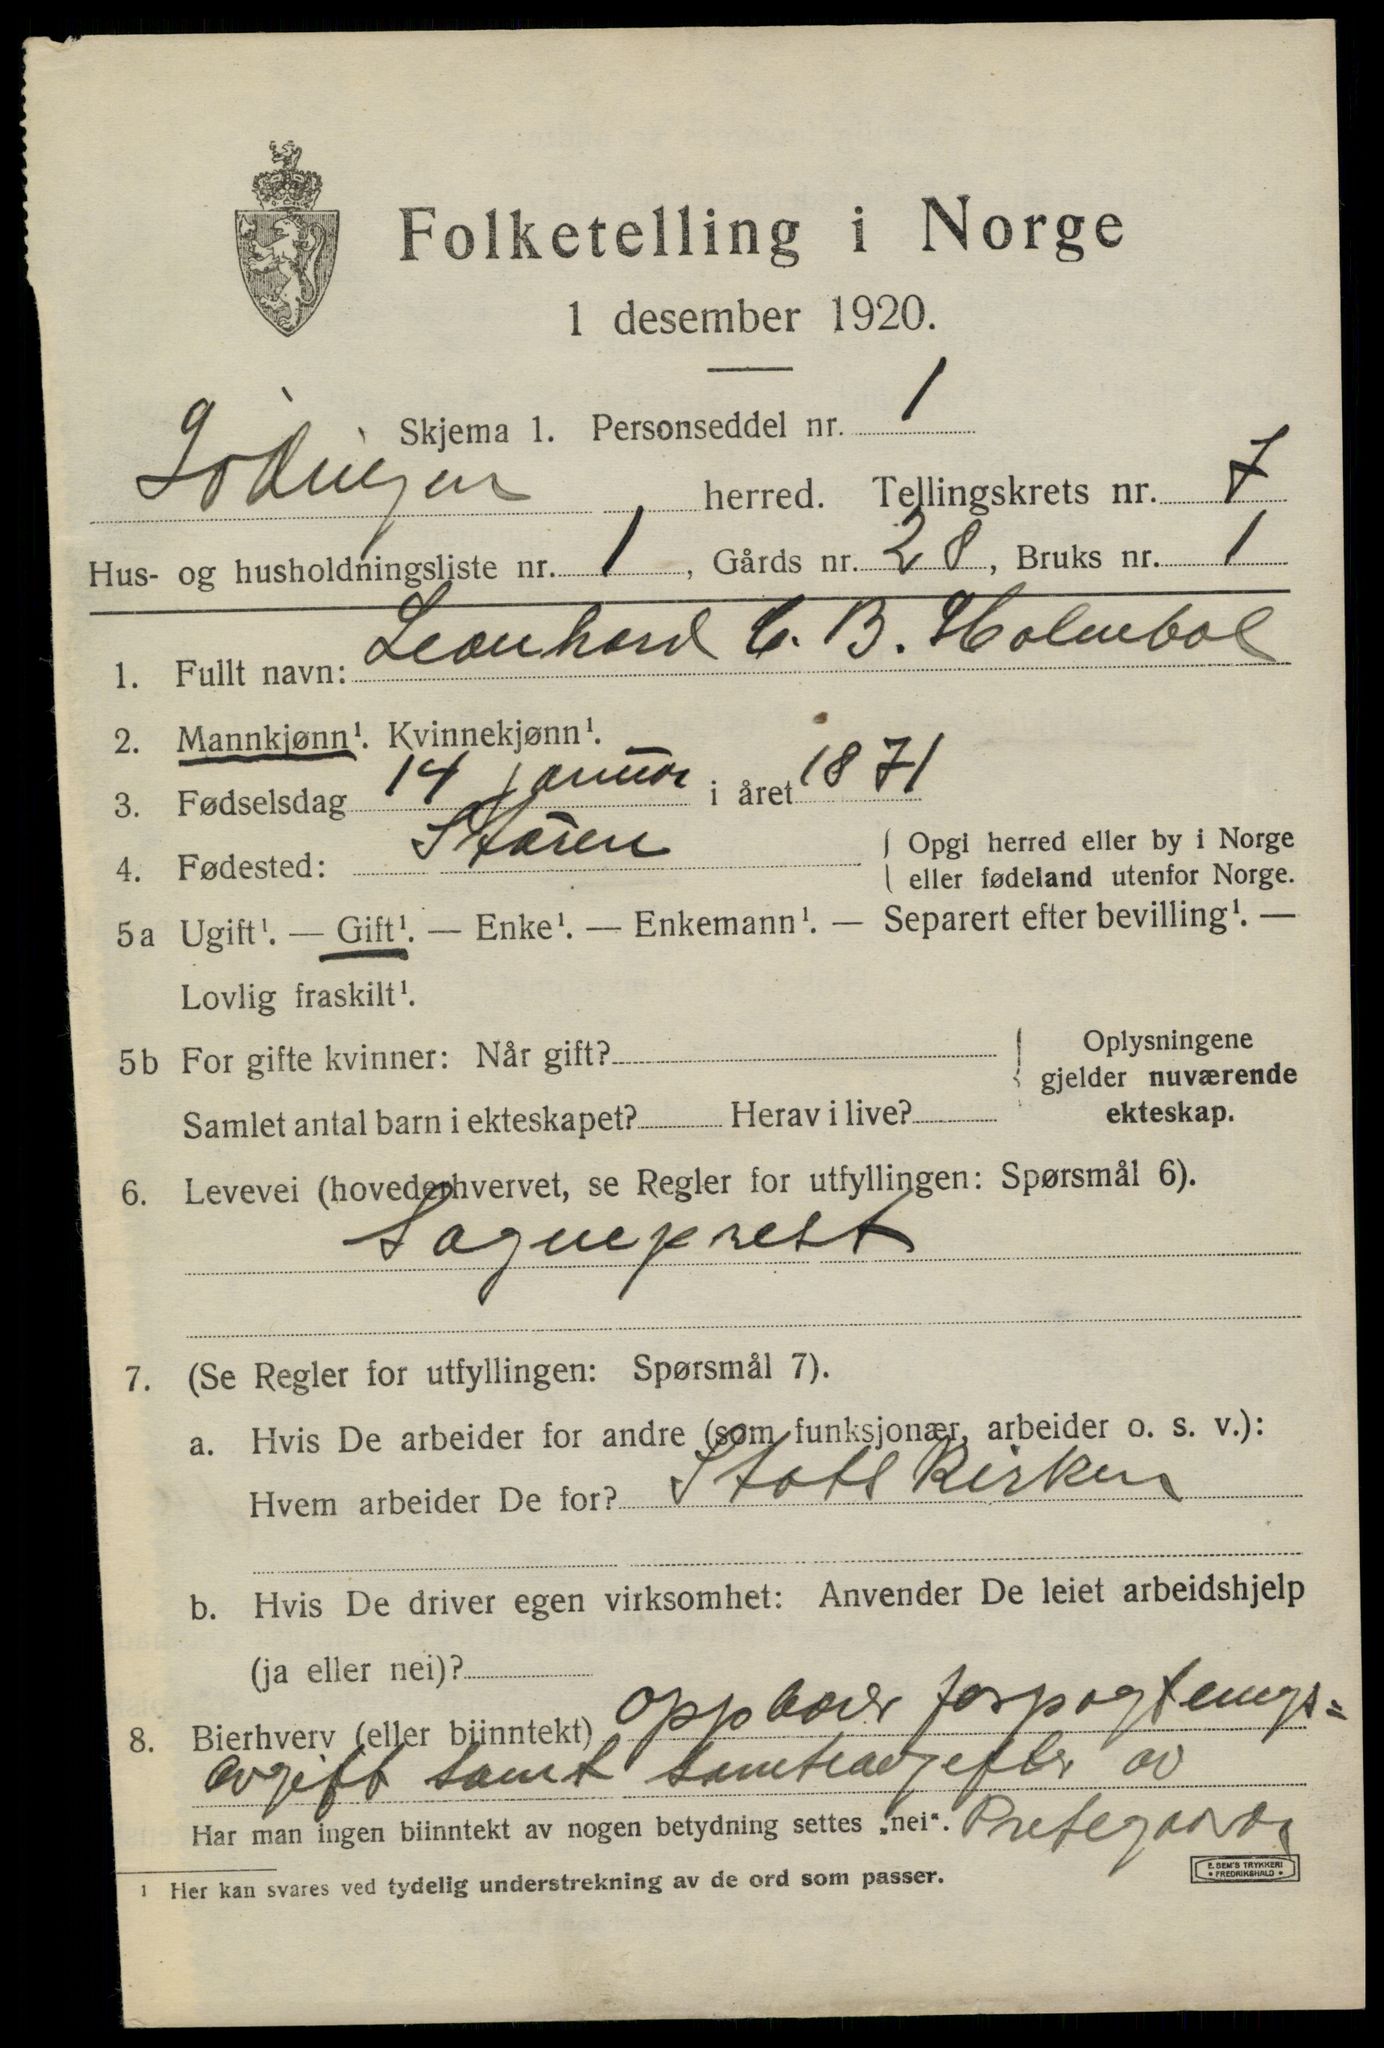 Folketelling i Norge
1 desember 1920.
Skjema 1. Personseddel nr. 1
Lødingen herred. Tellingskrets nr. 7
Hus- og husholdningsliste nr. 1, Gårds nr. 28, Bruks nr. 1
1. Fullt navn: Leonhard C. B. Holmboe
2. Mannkjønn¹. Kvinnekjønn¹.
3. Fødselsdag 14 januar i året 1871
4. Fødested: Støren { Opgi herred eller by i Norge
eller fødeland utenfor Norge.
5a Ugift¹. — Gift¹. — Enke¹. — Enkemann¹. — Separert efter bevilling¹. —
Lovlig fraskilt¹.
5b For gifte kvinner: Når gift? { Oplysningene
gjelder nuværende
Samlet antal barn i ekteskapet? Herav i live? ekteskap.
6. Levevei (hovederhvervet, se Regler for utfyllingen: Spørsmål 6).
Sogneprest
7. (Se Regler for utfyllingen: Spørsmål 7).
a. Hvis De arbeider for andre (som funksjonær, arbeider o. s. v.):
Hvem arbeider De for? Statskirken
b. Hvis De driver egen virksomhet: Anvender De leiet arbeidshjelp
(ja eller nei)?
8. Bierhverv (eller biinntekt) oppbærer forpagtnings=
avgift samt av
Har man ingen biinntekt av nogen betydning settes „nei“. Prestegaard
¹ Her kan svares ved tydelig understrekning av de ord som passer.
E. SEM'S TRYKKERI
• FREDRIKSHALD •